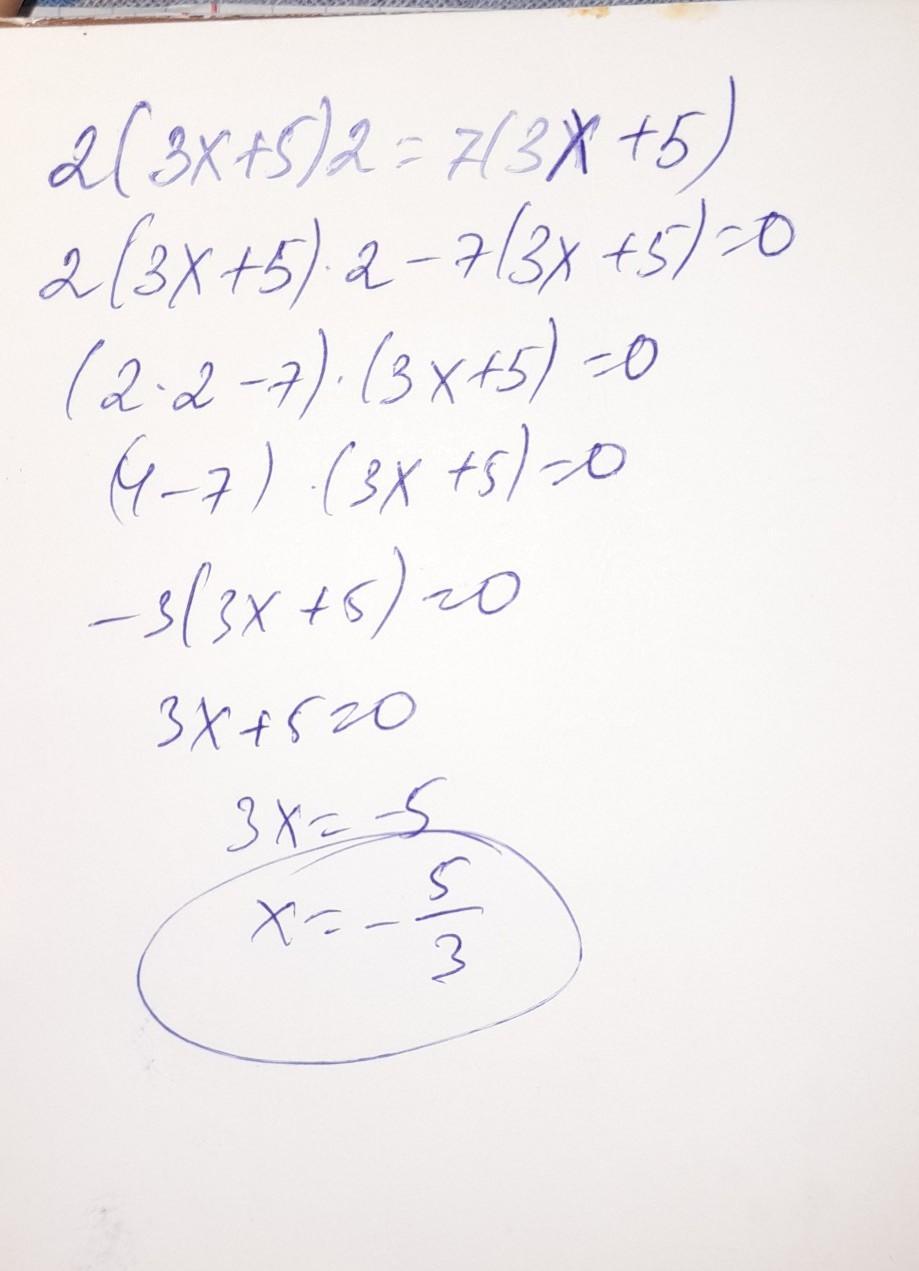 2(3x+5)2=7(3x+5)
2(3x+5)·2-7(3x+5)=0
(2·2-7)·(3x+5)=0
(4-7)·(3x+5)=0
-3(3x+5)=0
3x+5=0
3x=-5
x=-5/3